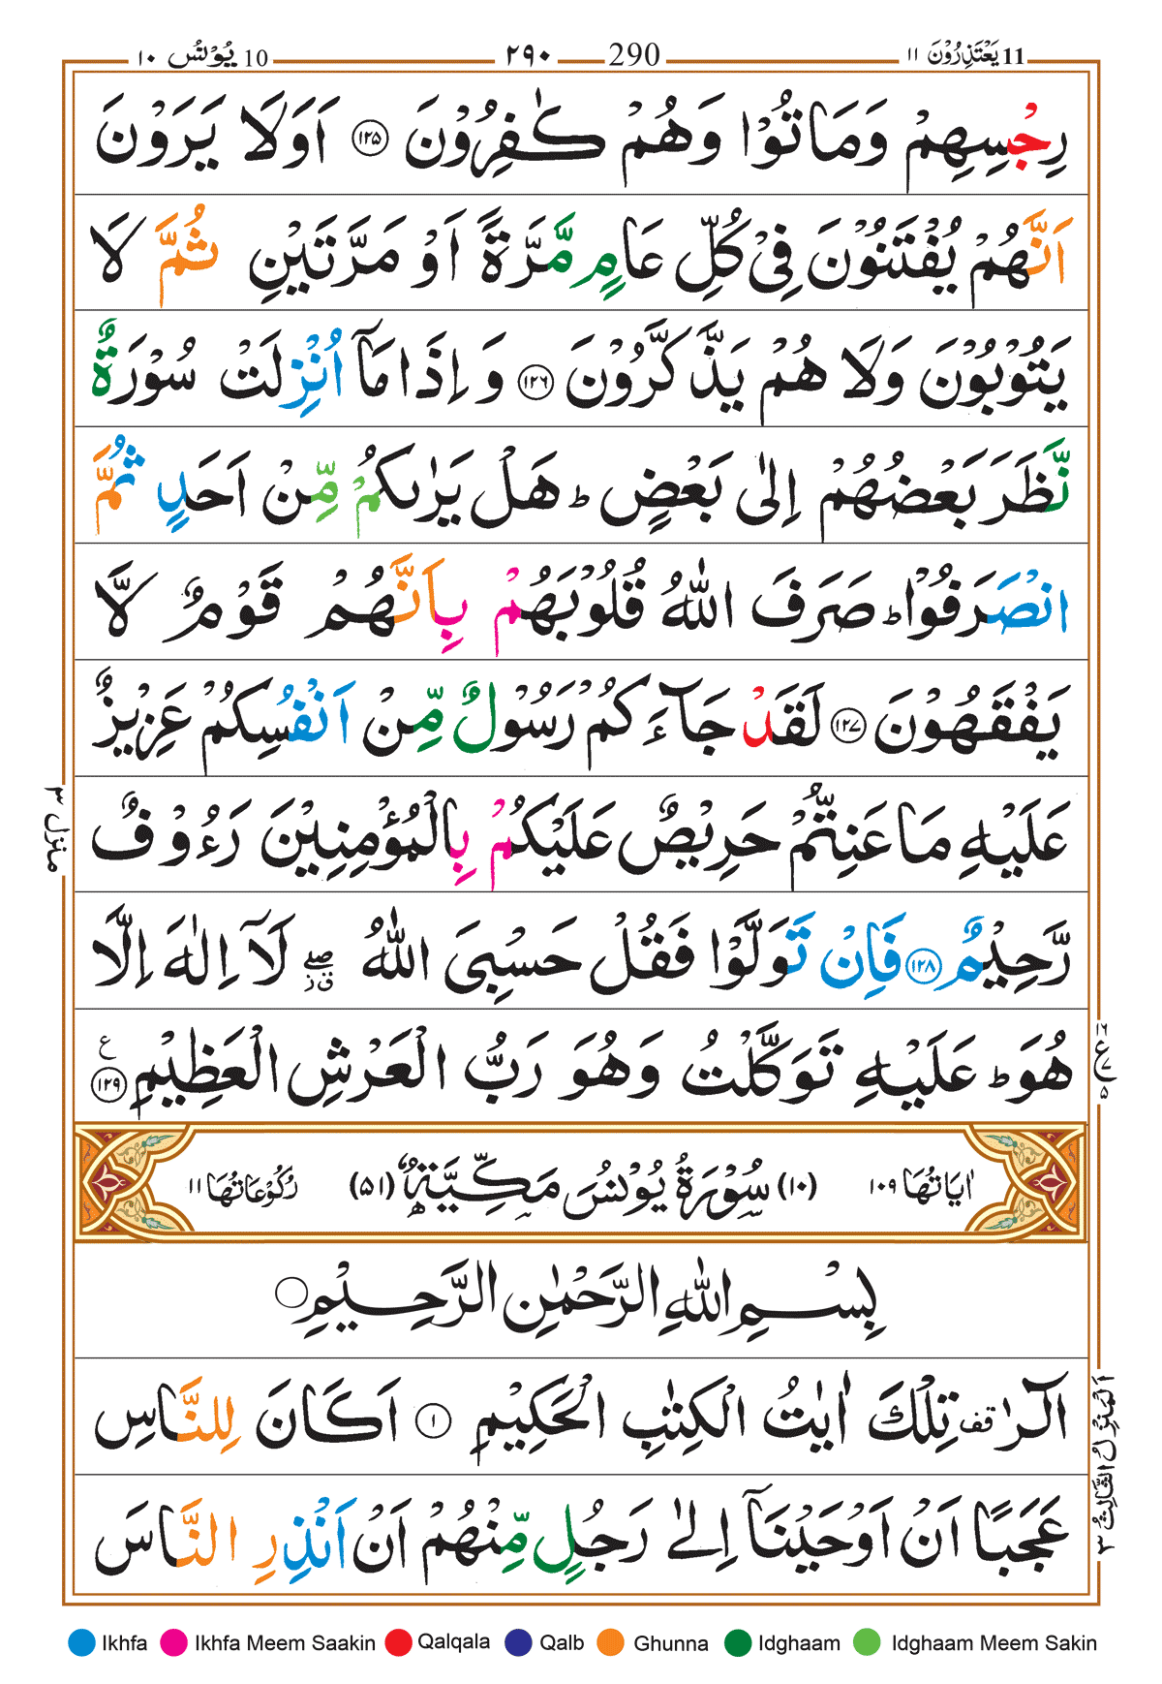 11 يَعْتَذِرُوْنَ ١١ 290 ٢٩٠ 10 يُوْنُسُ ١٠
رِجْسِهِمْ وَمَاتُوْا وَهُمْ كٰفِرُوْنَ ﴿١٢٥﴾ اَوَلَا يَرَوْنَ
اَنَّهُمْ يُفْتَنُوْنَ فِيْ كُلِّ عَامٍ مَّرَّةً اَوْ مَرَّتَيْنِ ثُمَّ لَا
يَتُوْبُوْنَ وَلَا هُمْ يَذَّكَّرُوْنَ ﴿١٢٦﴾ وَاِذَا مَآ اُنْزِلَتْ سُوْرَةٌ
نَّظَرَ بَعْضُهُمْ اِلٰى بَعْضٍ ؕ هَلْ يَرٰىكُمْ مِّنْ اَحَدٍ ثُمَّ
انْصَرَفُوْا ؕ صَرَفَ اللّٰهُ قُلُوْبَهُمْ بِاَنَّهُمْ قَوْمٌ لَّا
يَفْقَهُوْنَ ﴿١٢٧﴾ لَقَدْ جَآءَكُمْ رَسُوْلٌ مِّنْ اَنْفُسِكُمْ عَزِيْزٌ
عَلَيْهِ مَا عَنِتُّمْ حَرِيْصٌ عَلَيْكُمْ بِالْمُؤْمِنِيْنَ رَءُوْفٌ
رَّحِيْمٌ ﴿١٢٨﴾ فَاِنْ تَوَلَّوْا فَقُلْ حَسْبِيَ اللّٰهُ ۖ ق ز لَآ اِلٰهَ اِلَّا
هُوَ ؕ عَلَيْهِ تَوَكَّلْتُ وَهُوَ رَبُّ الْعَرْشِ الْعَظِيْمِ ﴿١٢٩﴾ ع
اٰيَاتُهَا ١٠٩ (١٠) سُوْرَةُ يُوْنُسَ مَكِّيَّةٌ (٥١) رُكُوْعَاتُهَا ١١
بِسْمِ اللّٰهِ الرَّحْمٰنِ الرَّحِيْمِ
الٓرٰ قف تِلْكَ اٰيٰتُ الْكِتٰبِ الْحَكِيْمِ ﴿١﴾ اَكَانَ لِلنَّاسِ
عَجَبًا اَنْ اَوْحَيْنَآ اِلٰى رَجُلٍ مِّنْهُمْ اَنْ اَنْذِرِ النَّاسَ
منزل ٣
ع ٥
اَلْمَنْزِلُ الثَّالِثُ ٣
Ikhfa Ikhfa Meem Saakin Qalqala Qalb Ghunna Idghaam Idghaam Meem Sakin